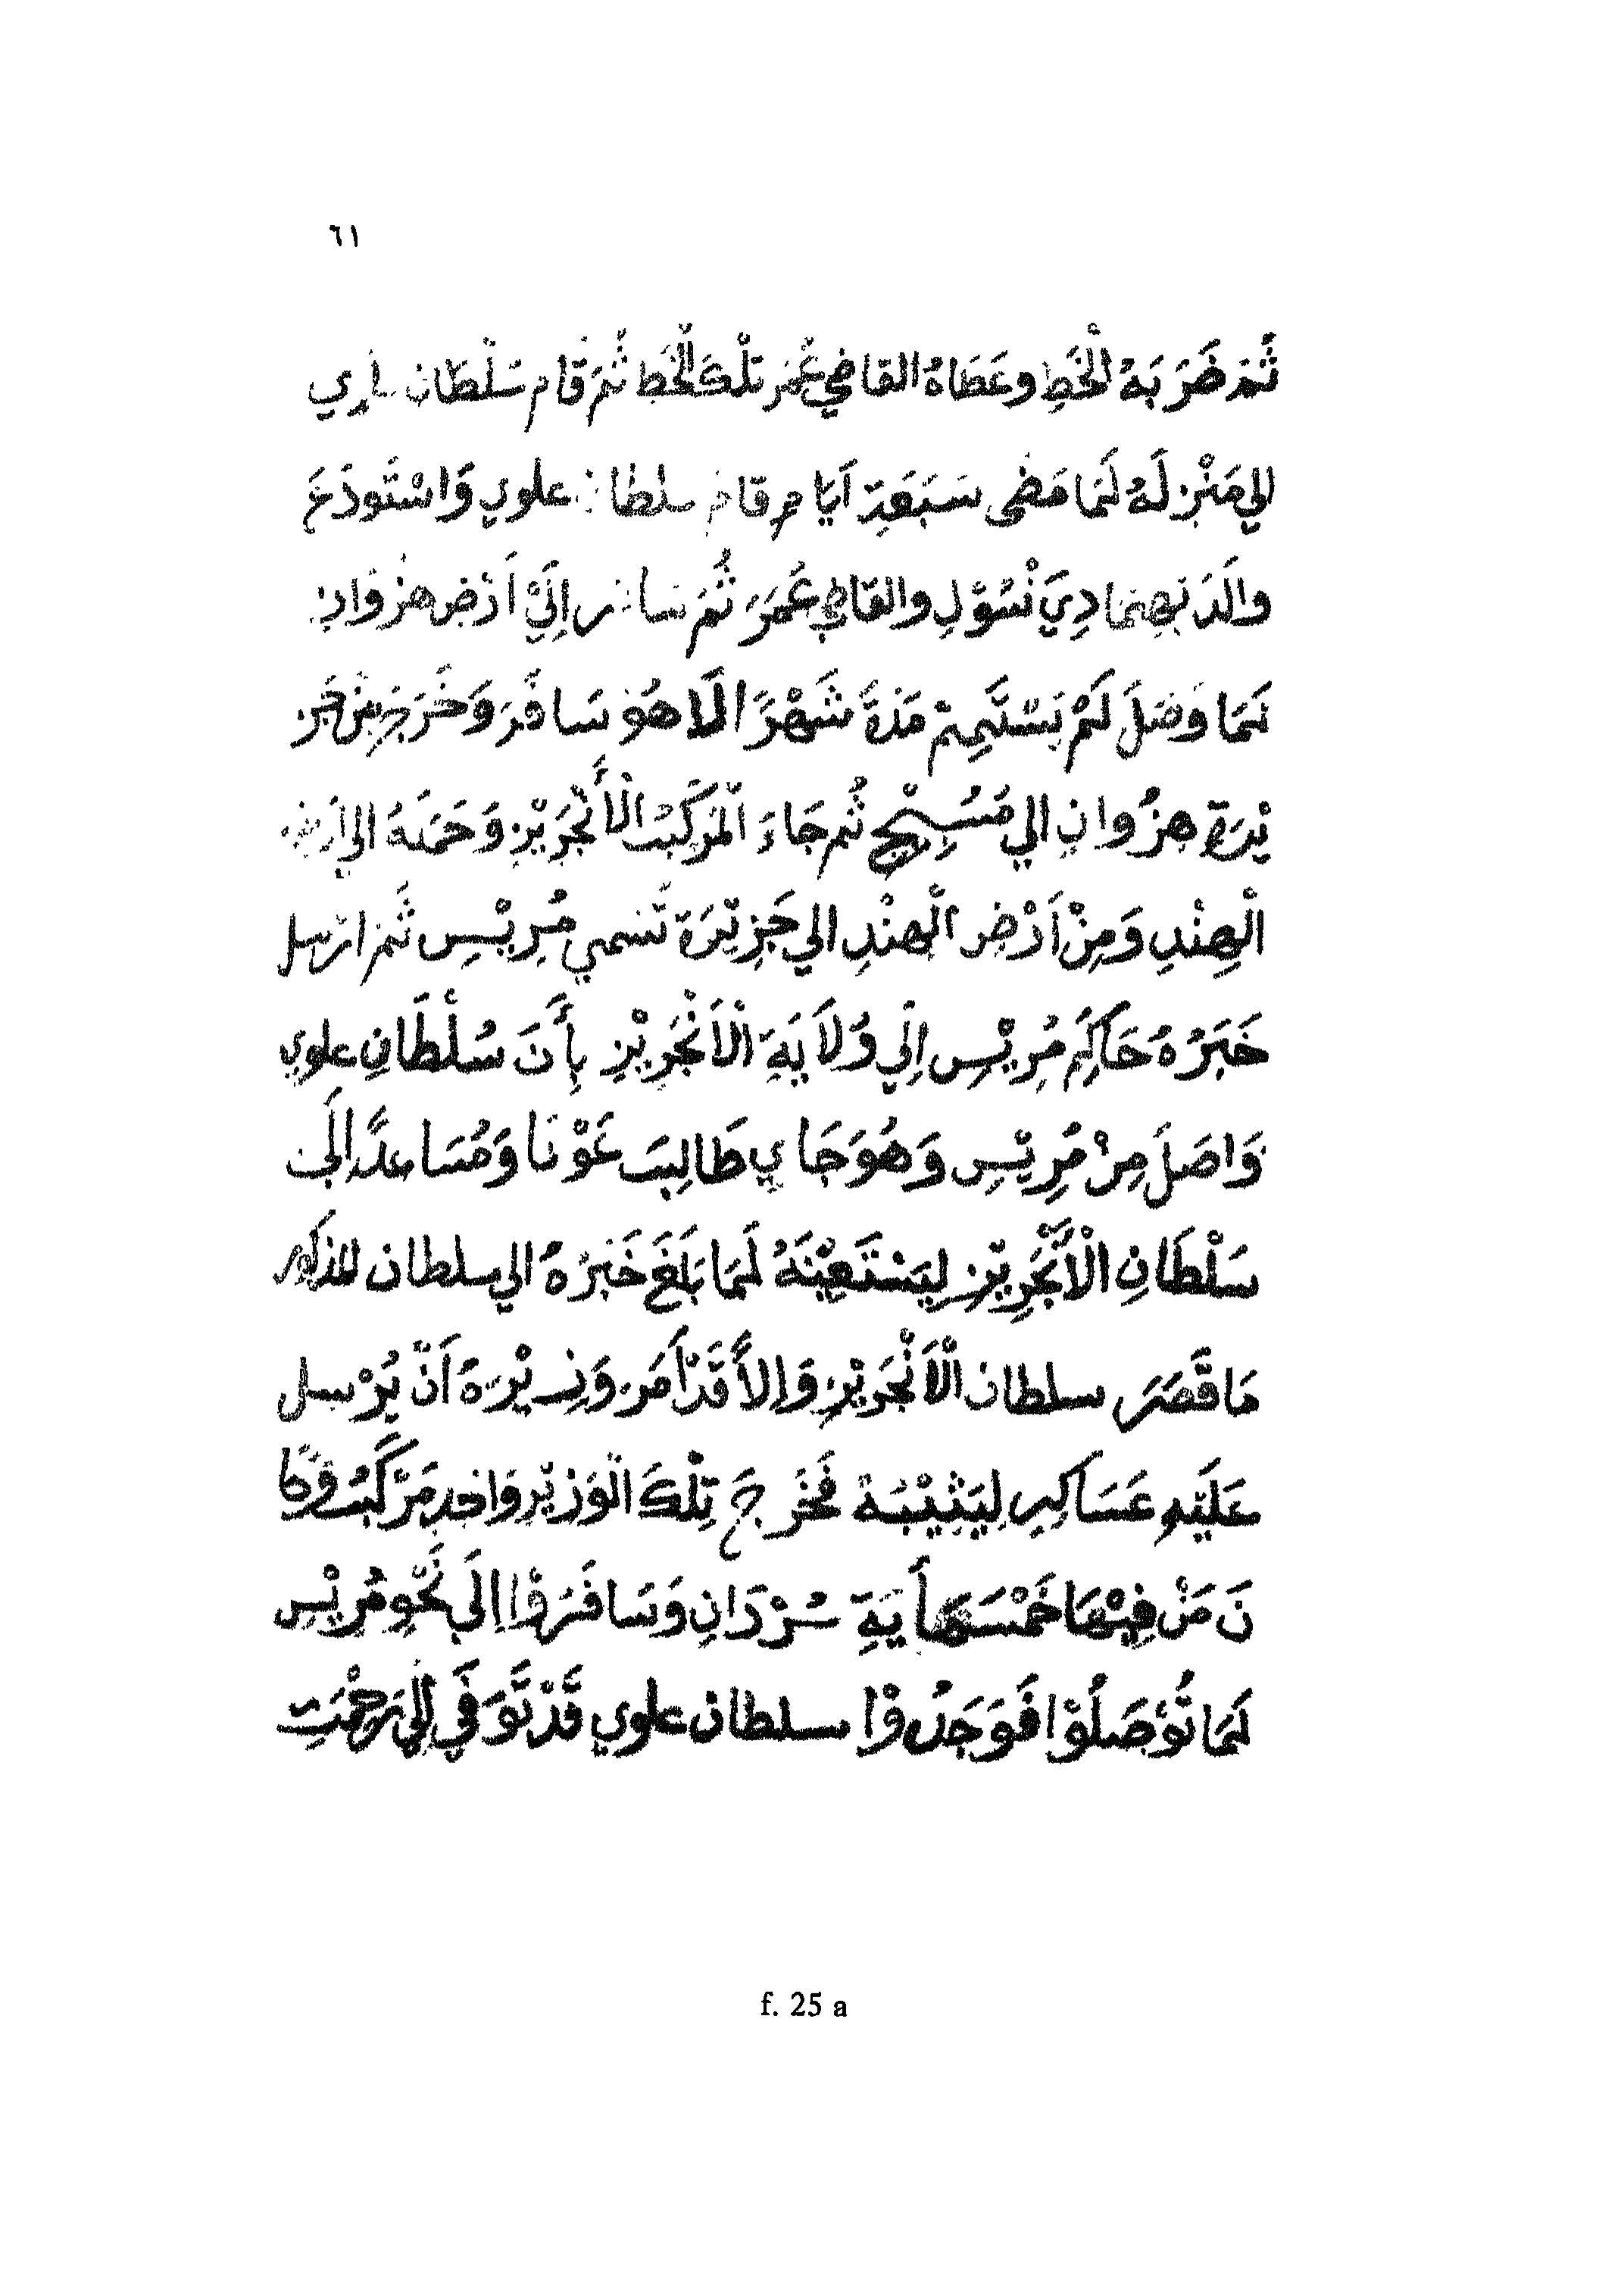 ٦١
ثُمَّ ضَرَبَهُ الْخَطِ وعَطَاهُ القاضِي عُمَر تِلْكَ الْخَط ثُمَّ قَام سَلْطَان علوي
الي مَنْزِلَهُ لَمَا مَضَى سَبَعَةِ آيَامِ قام سلطان علوي وَاسْتَودَعَ
والَدَيْهِمَا دِيَ نْسُوْلِ والقاضِ عُمَرَ ثُمَّ سافر اِلَيْ اَرْضِ هِزْوَانِ
لَمَا وَصَلَ لَمْ يَسْتَتِمْ مَدَةَ شَهْرًا الَا هُوَ سَافَرَ وَخَرَجَ مِنْ جَزِ
يْرَة هِزُوانِ الي مَسُبِيْحِ ثُم جَاءَ الْمَرْكَبْ الْأَنْجَرَيْزِ وَحَمَلَهَ الي اَرْضِ
الْهِنْدِ وَمِنْ اَرْضِ الْهِنْدِ الي جَزِيْرَة تَسمي مُرِيْسِ ثَم ارْسل
خَبَرُهُ حَاكِمُ مُرِيْسِ اِلَي وَلَايَةِ الْاَنْجَرِيْزِ بِأَنَ سُلْطَانِ علوي
وَاصَلَ مِنْ مُرِيْسِ وَهُوَ جَايِ طَالِبَ عَوْنَا وَمُسَاعدًا اِلَى
سَلْطَانِ الْأَنْجَرِيْزِ لِيَسْتَعِيْنَهُ لَمَا بَلَغَ خَبَرُهُ الي سلطان المذكور
مَا قَصَرَ سلطان الْأَنْجَرَيْزِ وَاِلَّا قَدْ اَمَرَ وَزِيْرَهُ اَنْ يُرْسل
عَلَيْهِ عَسَاكِرِ لِيَثِيْبَهْ فَخَرَجَ تِلْكَ الْوَزِيْرِ وَاحِدِ مَرْكَبُ وَكَا
نَ مَنْ فِيْهَا خَمْسَمِأَيَةِ سُرْدَانِ وَسَافَرُوْا اِلَي نَحْوِ مُرِيْسِ
لَمَا تُوَصَلُوْا فَوَجَدُوْا سلطان علوي قَدْ تَّوَفَي اِلَي رَحْمَتِ
f. 25 a